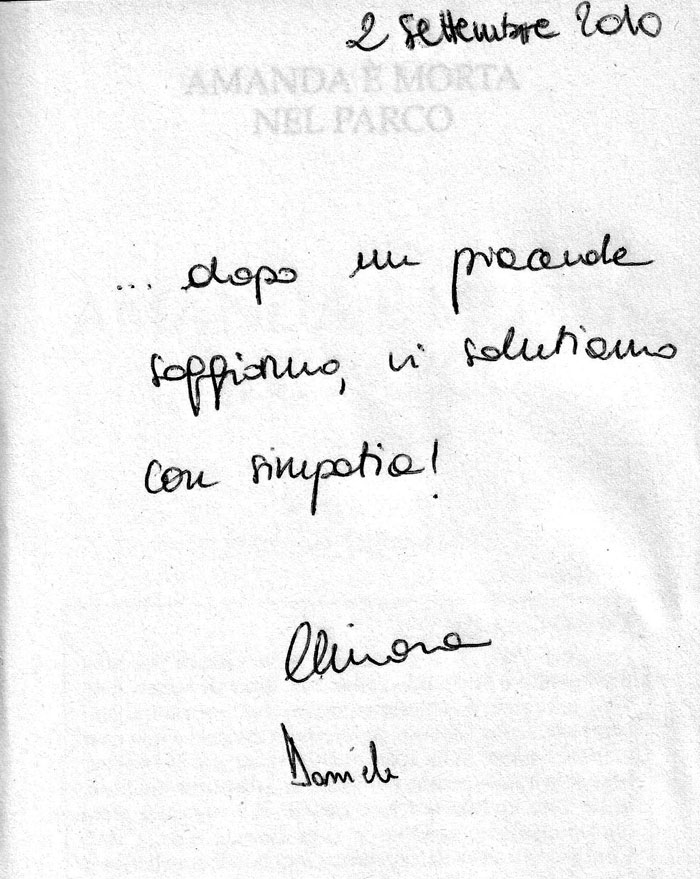 2 settembre 2010
AMANDA È MORTA
NEL PARCO
... dopo un piacevole
soggiorno, vi salutiamo
con simpatia!
Daniele